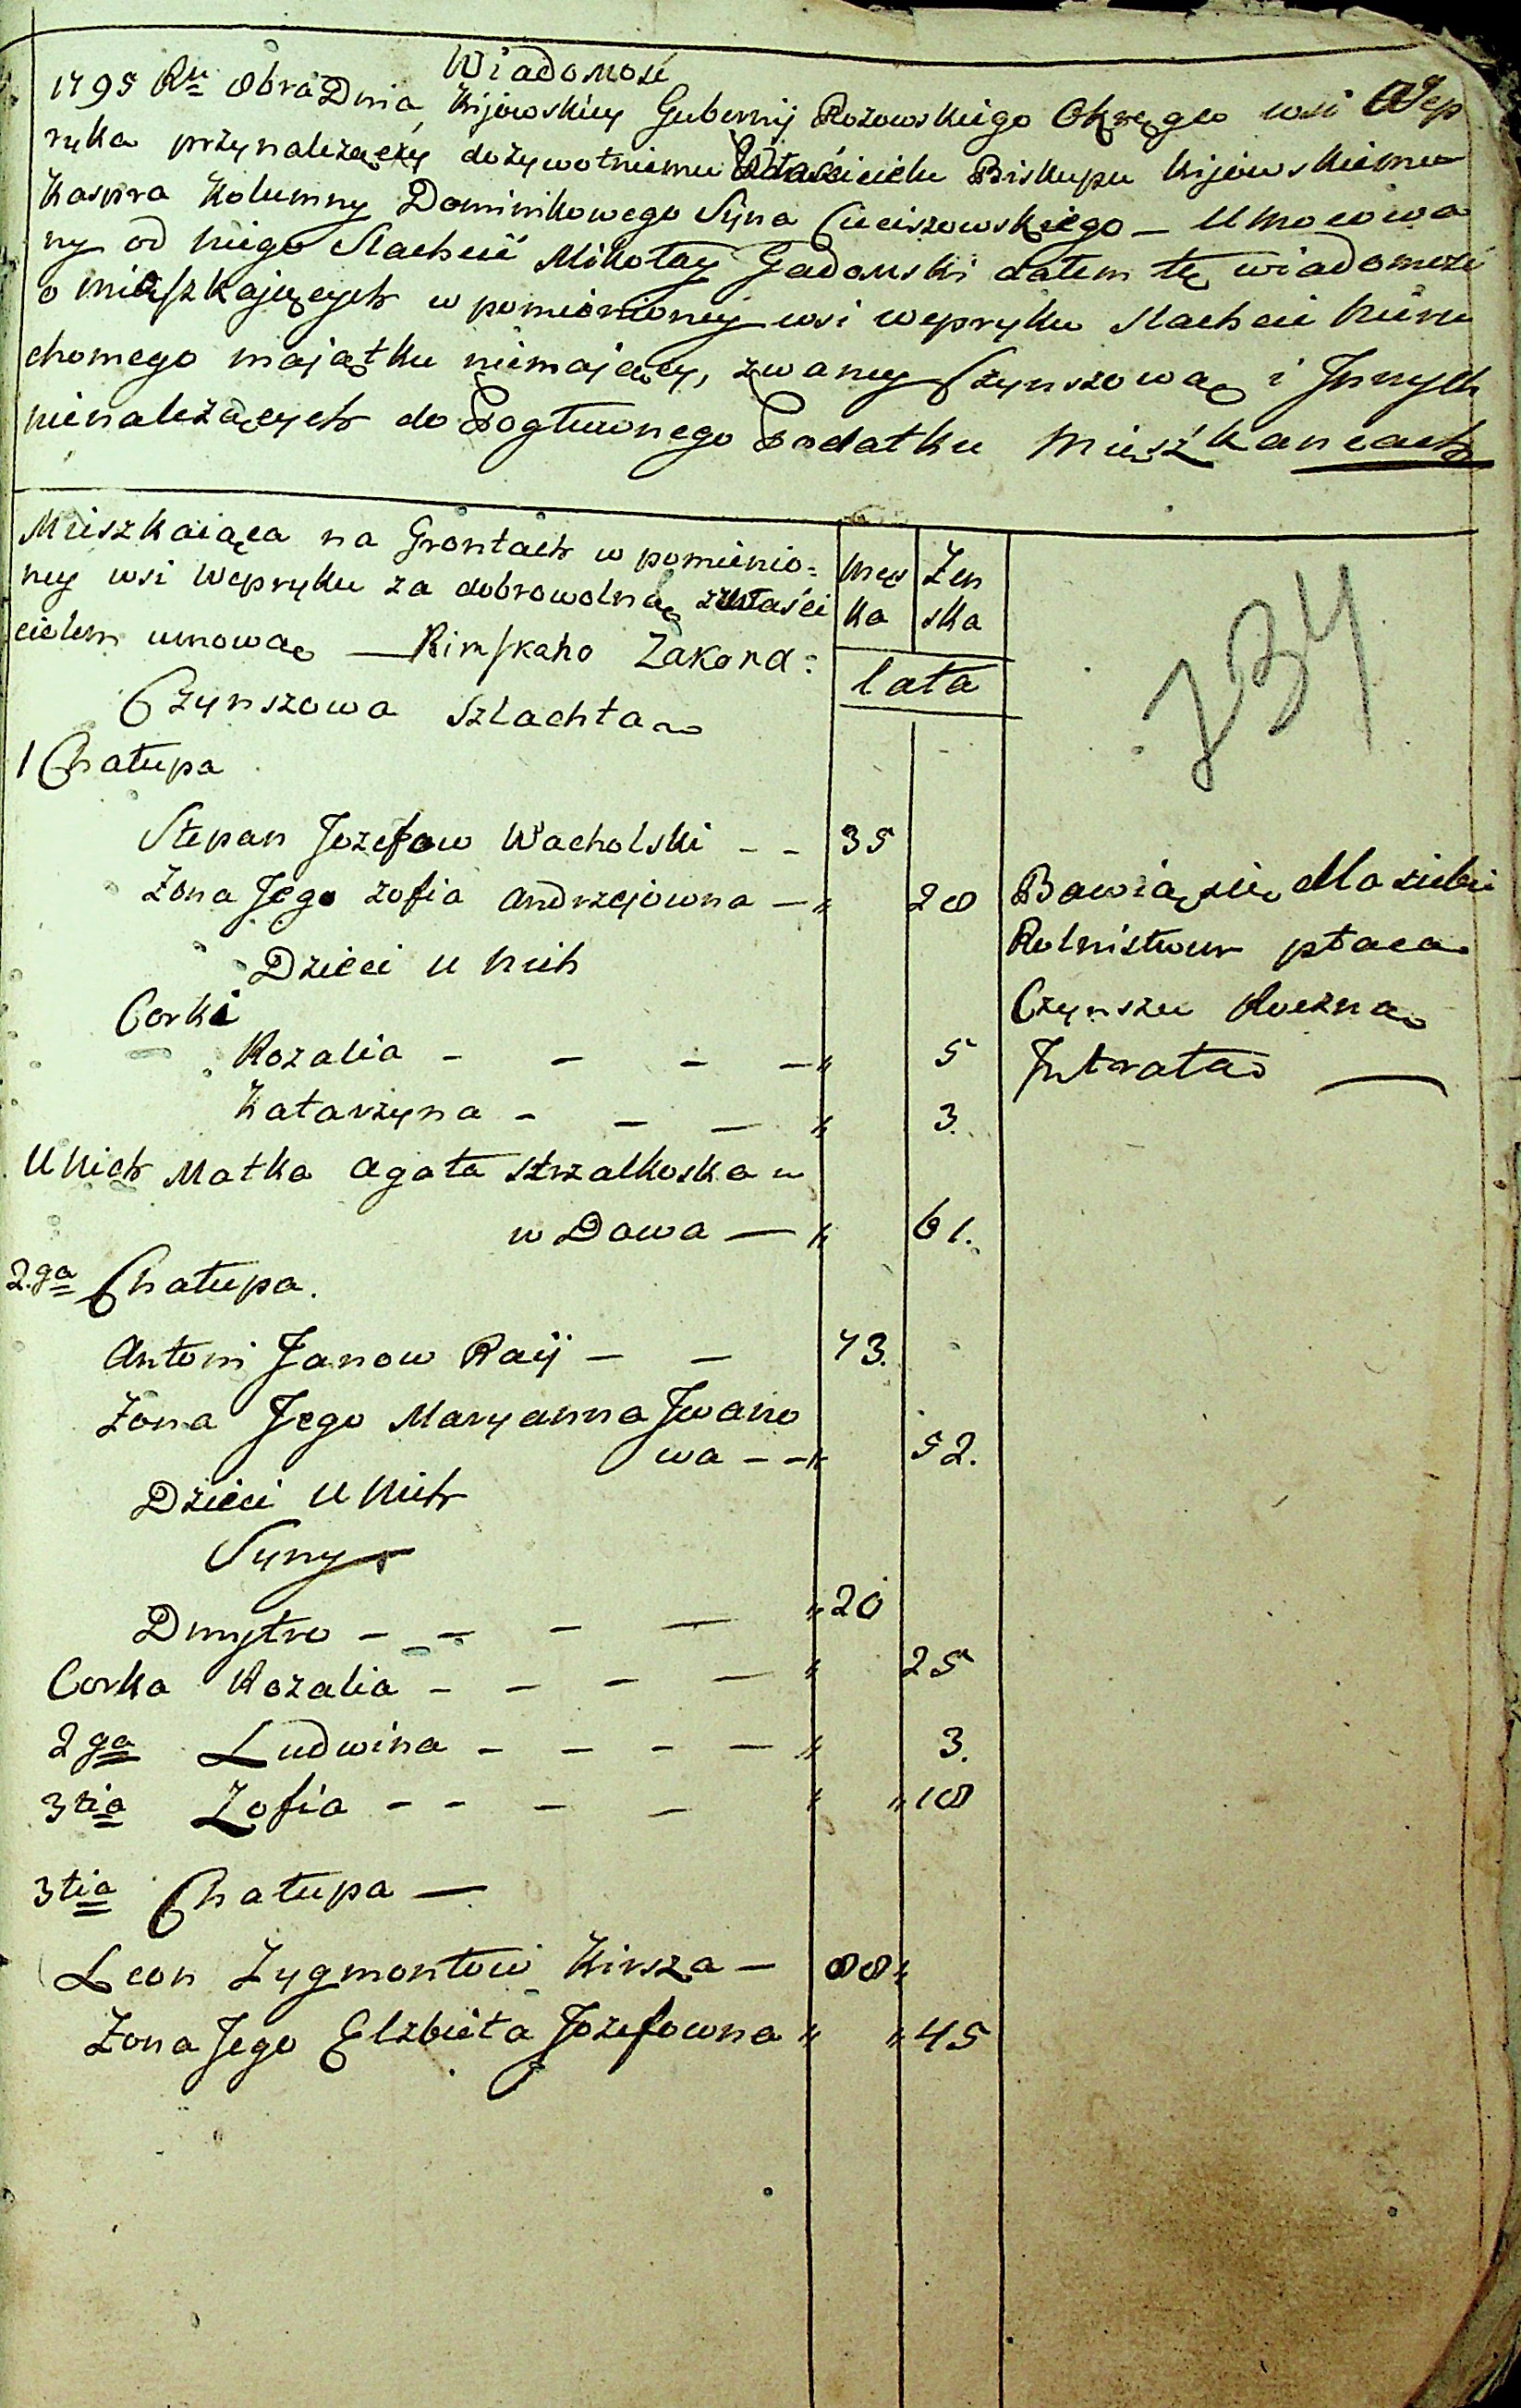 Wiadomość
1795 Ru obra Dnia Kijowskiey Gubernij Rożowskiego Okręgu wsi Wep
ryka przynależączy dożywotniemu Właścicielu Biskupu Kijowskiemu
Kaspra Kolumny Dominikowego Syna Cieciszowskiego — Umocowa
ny od niego Slachcić Mikołay Gadomski dałem tę wiadomość
o miaszkajęcych w pomienioney wsi wepryku Slachcie nieru
chomego mająłku niemający, zwaney Czynszową i Jnnych
nienależących do Pogłuwnego Podatku Mieszkancach
Mieszkaiąca na Grontach w pomienio:
ney wsi Wepryku za dobrowolną zwłaści
cielem umową — Rimskaho Zakona:
Czynszowa Szlachta
męs
ka
Żen
ska
lata
734
1 Chałupa
Stepan Jozefow Wacholski - - 35
Żona Jego Zofia Andrzejowna — " 28
Dzieci u nich
Corki
Rozalia - - - — " 5
Katarzyna - - — " 3.
U Nich Matka Agata Strzalkoska
wDowa — " 61.
Bawią się dla siebie
Rolnistwem płaca
Czynszu Roczną
Jntratą —
2.ga Chałupa.
Antoni Janow Raij - - 73.
Żona Jego Maryanna Jwano
wa - - " 52.
Dzieci U Nich
Syny
Dmytro - - - — " 20
Corka Rozalia - - - — " 25
2ga Ludwina - - - — " 3.
3tia Zofia - - - - " " 18
3tia Chałupa —
Leon Zygmontow Kirsza — 88 "
Żona Jego Elzbieta Jozefowna " " 45